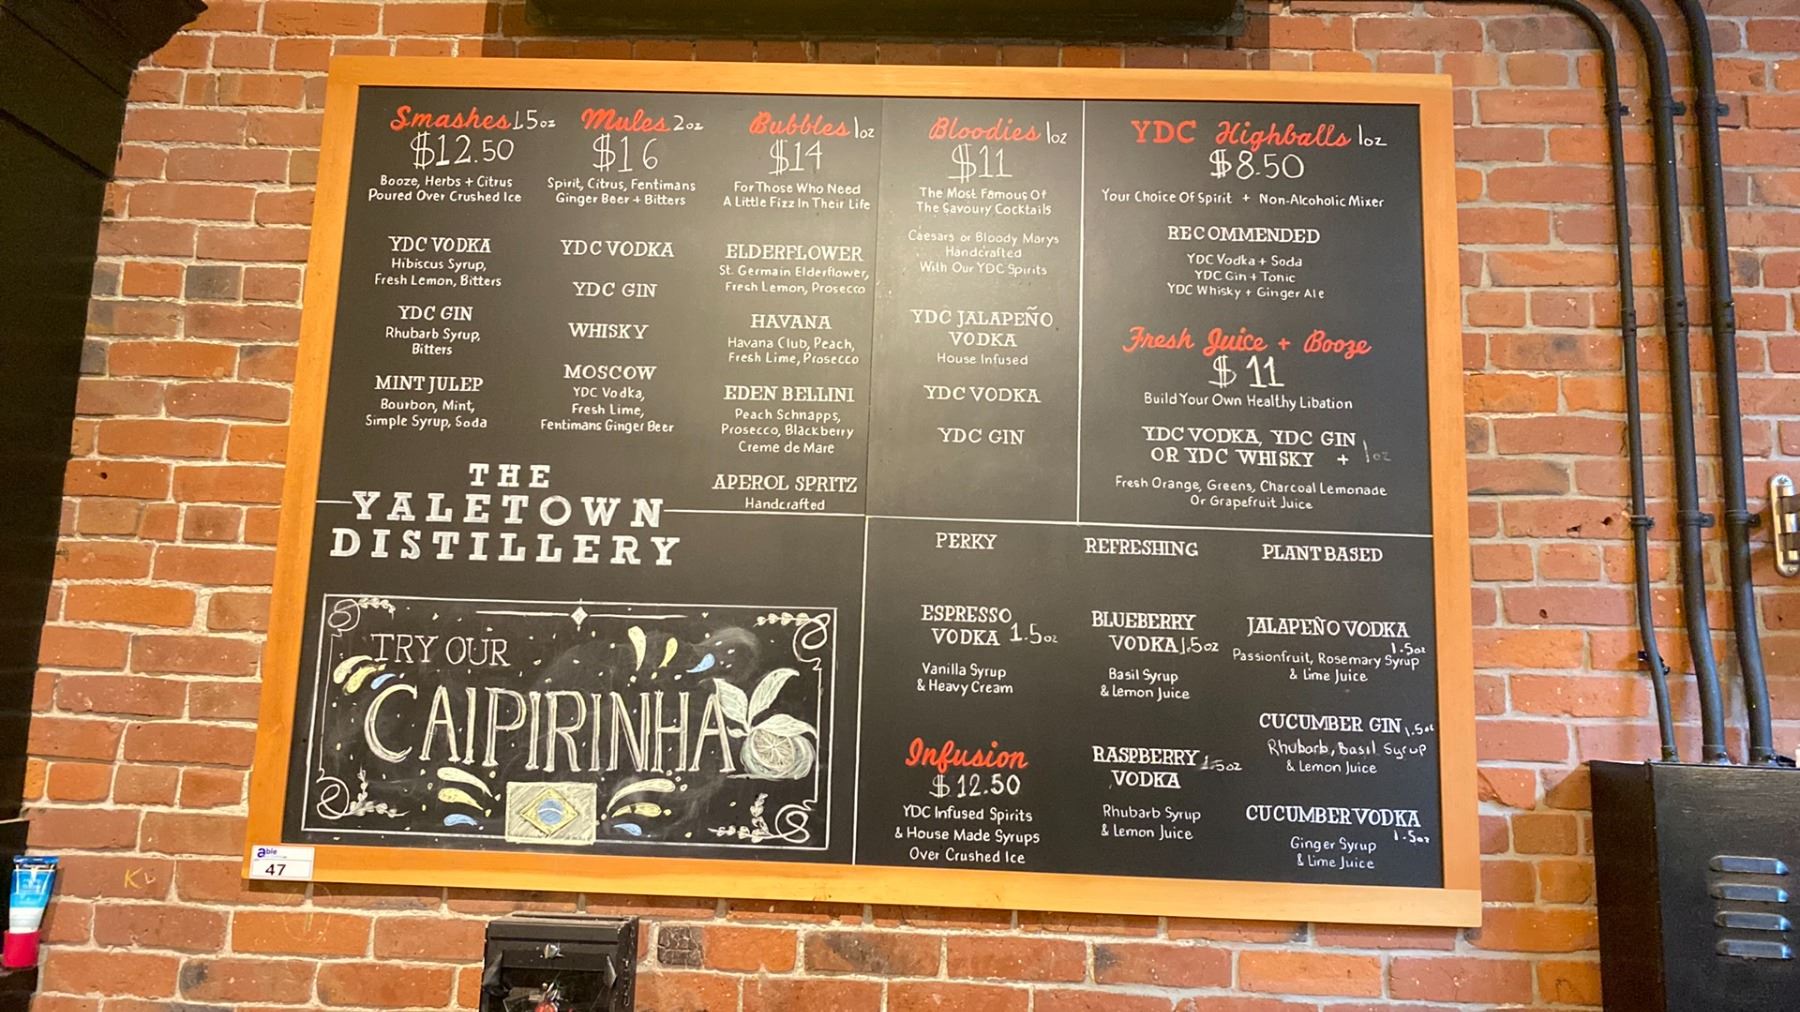 Smashes 1.5oz
$12.50
Booze, Herbs + Citrus
Poured Over Crushed Ice
YDC VODKA
Hibiscus Syrup,
Fresh Lemon, Bitters
YDC GIN
Rhubarb Syrup,
Bitters
MINT JULEP
Bourbon, Mint,
Simple Syrup, Soda
Mules 2oz
$16
Spirit, Citrus, Fentimans
Ginger Beer + Bitters
YDC VODKA
YDC GIN
WHISKY
MOSCOW
YDC Vodka,
Fresh Lime,
Fentimans Ginger Beer
Bubbles 1oz
$14
For Those Who Need
A Little Fizz In Their Life
ELDERFLOWER
St. Germain Elderflower,
Fresh Lemon, Prosecco
HAVANA
Havana Club, Peach,
Fresh Lime, Prosecco
EDEN BELLINI
Peach Schnapps,
Prosecco, Blackberry
Creme de Mare
APEROL SPRITZ
Handcrafted
Bloodies 1oz
$11
The Most Famous Of
The Savoury Cocktails
Caesars or Bloody Marys
Handcrafted
With Our YDC Spirits
YDC JALAPEÑO
VODKA
House Infused
YDC VODKA
YDC GIN
YDC Highballs 1oz
$8.50
Your Choice Of Spirit + Non-Alcoholic Mixer
RECOMMENDED
YDC Vodka + Soda
YDC Gin + Tonic
YDC Whisky + Ginger Ale
Fresh Juice + Booze
$11
Build Your Own Healthy Libation
YDC VODKA, YDC GIN
OR YDC WHISKY + 1oz
Fresh Orange, Greens, Charcoal Lemonade
Or Grapefruit Juice
THE
YALETOWN
DISTILLERY
TRY OUR
CAIPIRINHA
PERKY
ESPRESSO
VODKA 1.5oz
Vanilla Syrup
& Heavy Cream
Infusion
$12.50
YDC Infused Spirits
& House Made Syrups
Over Crushed Ice
REFRESHING
BLUEBERRY
VODKA 1.5oz
Basil Syrup
& Lemon Juice
RASPBERRY 1.5oz
VODKA
Rhubarb Syrup
& Lemon Juice
PLANT BASED
JALAPEÑO VODKA
1.5oz
Passionfruit, Rosemary Syrup
& Lime Juice
CUCUMBER GIN 1.5oz
Rhubarb, Basil Syrup
& Lemon Juice
CUCUMBER VODKA
1.5oz
Ginger Syrup
& Lime Juice
able
47